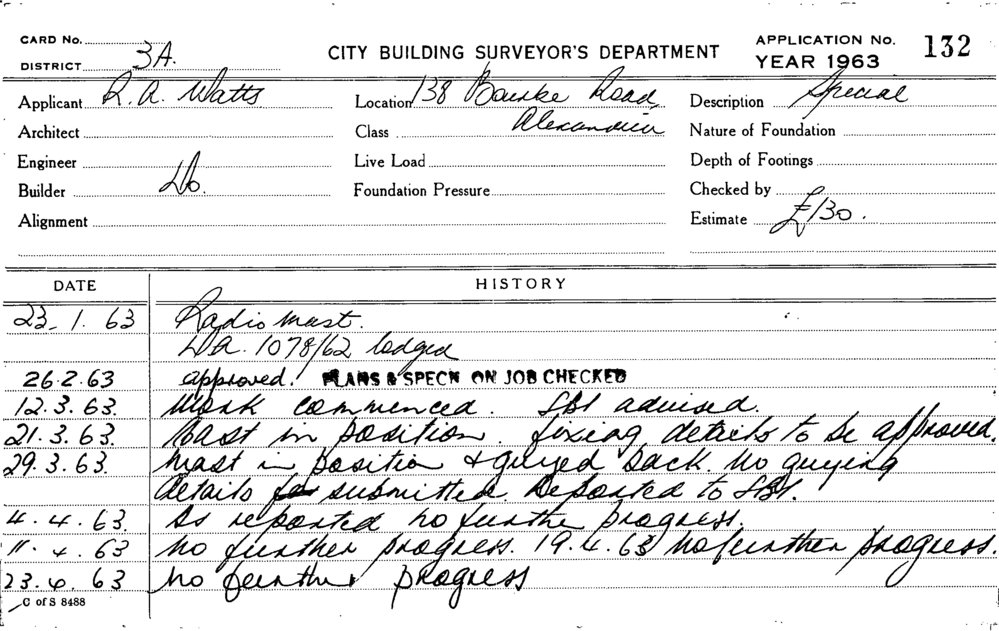 CARD No.
DISTRICT 3A.
CITY BUILDING SURVEYOR'S DEPARTMENT
APPLICATION No. 132
YEAR 1963
Applicant R. A. Watts
Location 138 Bourke Road,
Alexandria
Description Special
Architect
Class
Nature of Foundation
Engineer
Live Load
Depth of Footings
Builder Do.
Foundation Pressure
Checked by
Alignment
Estimate £130.
DATE
HISTORY
23. 1. 63 Radio mast.
D.A. 1078/62 lodged
26.2.63 approved. PLANS & SPECN ON JOB CHECKED
12.3.63. Work commenced. SBI advised.
21.3.63. Mast in position. fixing details to be approved.
29.3.63. Mast in position & guyed back. No guying
details submitted. Reported to SBI.
4.4.63. As reported no further progress.
11.4.63 No further progress. 19.4.63 No further progress.
23.4.63 No further progress
C of S 8488